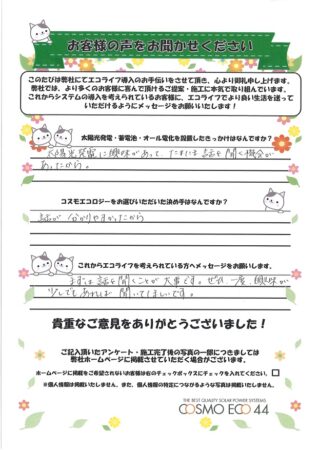 お客様の声をお聞かせください
このたびは弊社にてエコライフ導入のお手伝いをさせて頂き、心より御礼申し上げます。
弊社では、より多くのお客様に喜んで頂けるご提案・施工に本気で取り組んでいます。
これからシステムの導入を考えられているお客様に、エコライフでより良い生活を送って
いただけるようにメッセージをお願いします！
太陽光発電・蓄電池・オール電化を設置したきっかけはなんですか？
太陽光発電に興味があって、たまたま話を聞く機会が
あったから。
コスモエコロジーをお選びいただいた決め手はなんですか？
話が分かりやすかったから
これからエコライフを考えられている方へメッセージをお願いします。
まずは話を聞くことが大事です。ぜひ一度、興味が
少しでもあれば聞いてほしいです。
貴重なご意見をありがとうございました！
ご記入頂いたアンケート・施工完了後の写真の一部につきましては
弊社ホームページに掲載させていただく場合がございます。
ホームページに掲載をご希望されないお客様は右のチェックボックスにチェックを入れてください。
※個人情報は掲載いたしません。また、個人情報の特定につながるような写真は掲載いたしません。
THE BEST QUALITY SOLAR POWER SYSTEMS
COSMO ECO 44